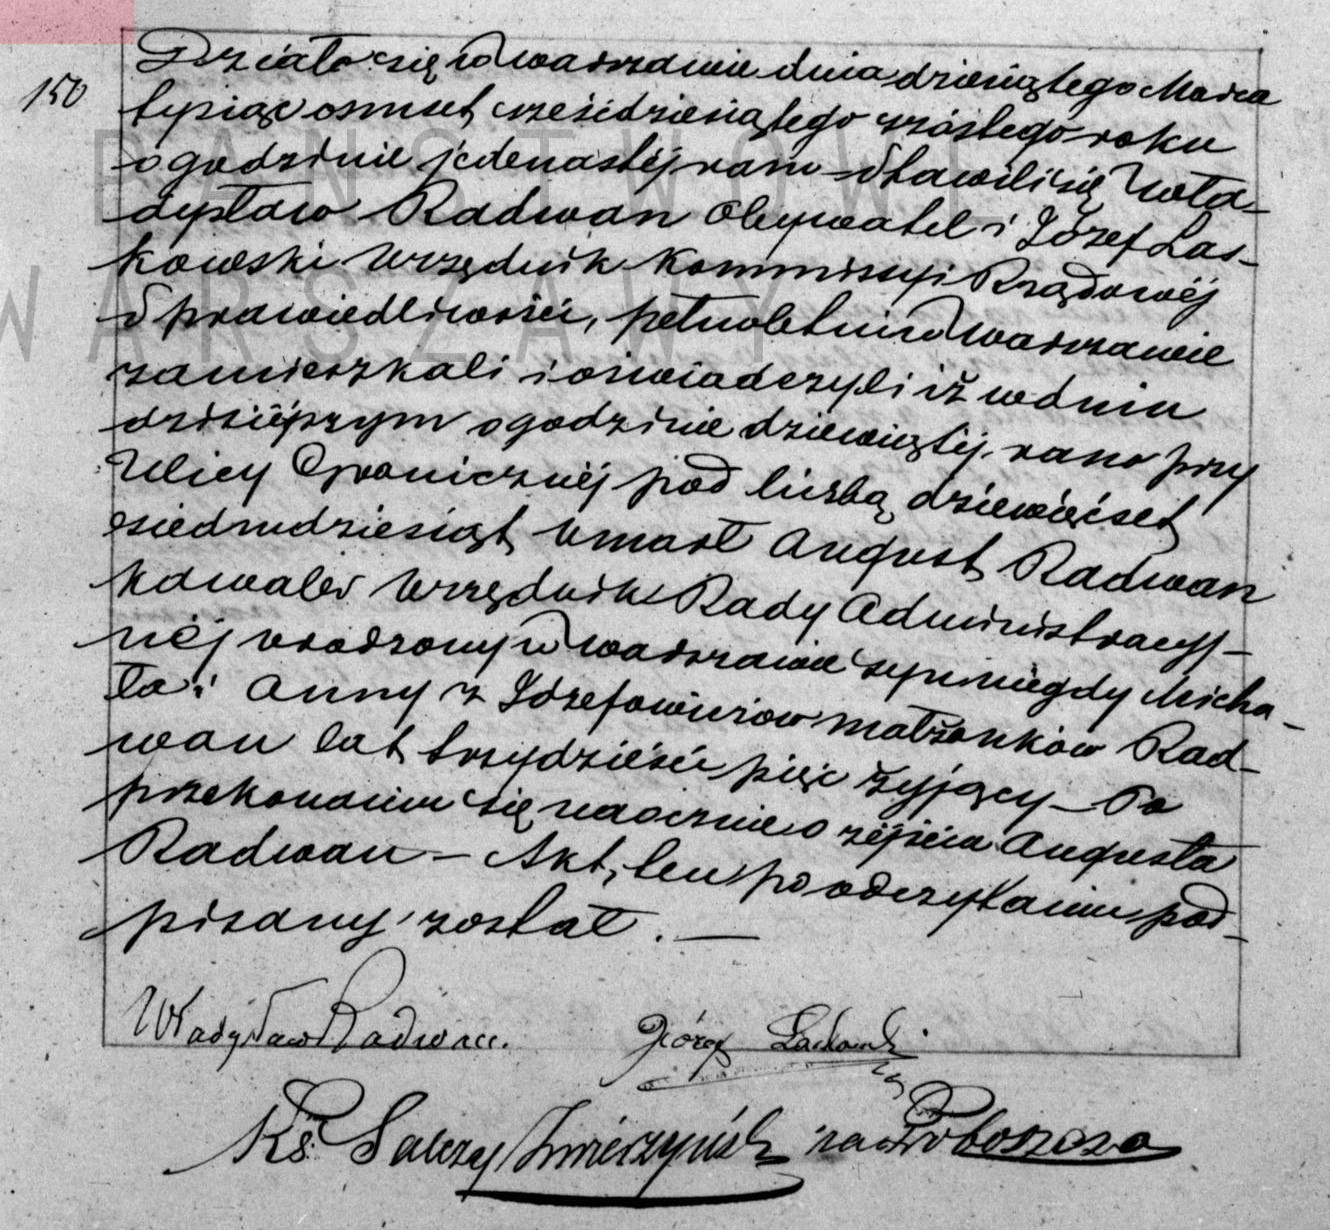 150
Działo się w Warszawie dnia dziesiątego Marca
tysiąc osmset sześćdziesiątego szóstego roku
o godzinie jedenastéj rano – Stawili się Wła-
dysław Radwan Obywatel i Józef Las-
kowski Urzędnik Kommissyi Rządowéj
Sprawiedliwości, pełnoletni w Warszawie
zamieszkali i oświadczyli iż w dniu
dzisiéjszym o godzinie dziewiątéj rano przy
Ulicy Granicznéj pod liczbą dziewięćset
siedmdziesiąt umarł August Radwan
kawaler Urzędnik Rady Administracyj-
néj urodzony w Warszawie syn niegdy Micha-
ła i Anny z Józefowiczów małżonków Rad-
wan lat trzydzieści pięć żyjący – Po
przekonaniu się naocznie o zéjściu Augusta
Radwan – Akt ten po odczytaniu pod-
pisany został. —
Władysław Radwan.
Józef Laskowski
Ks. za Proboszcza
PAŃSTWOWE
WARSZAWY